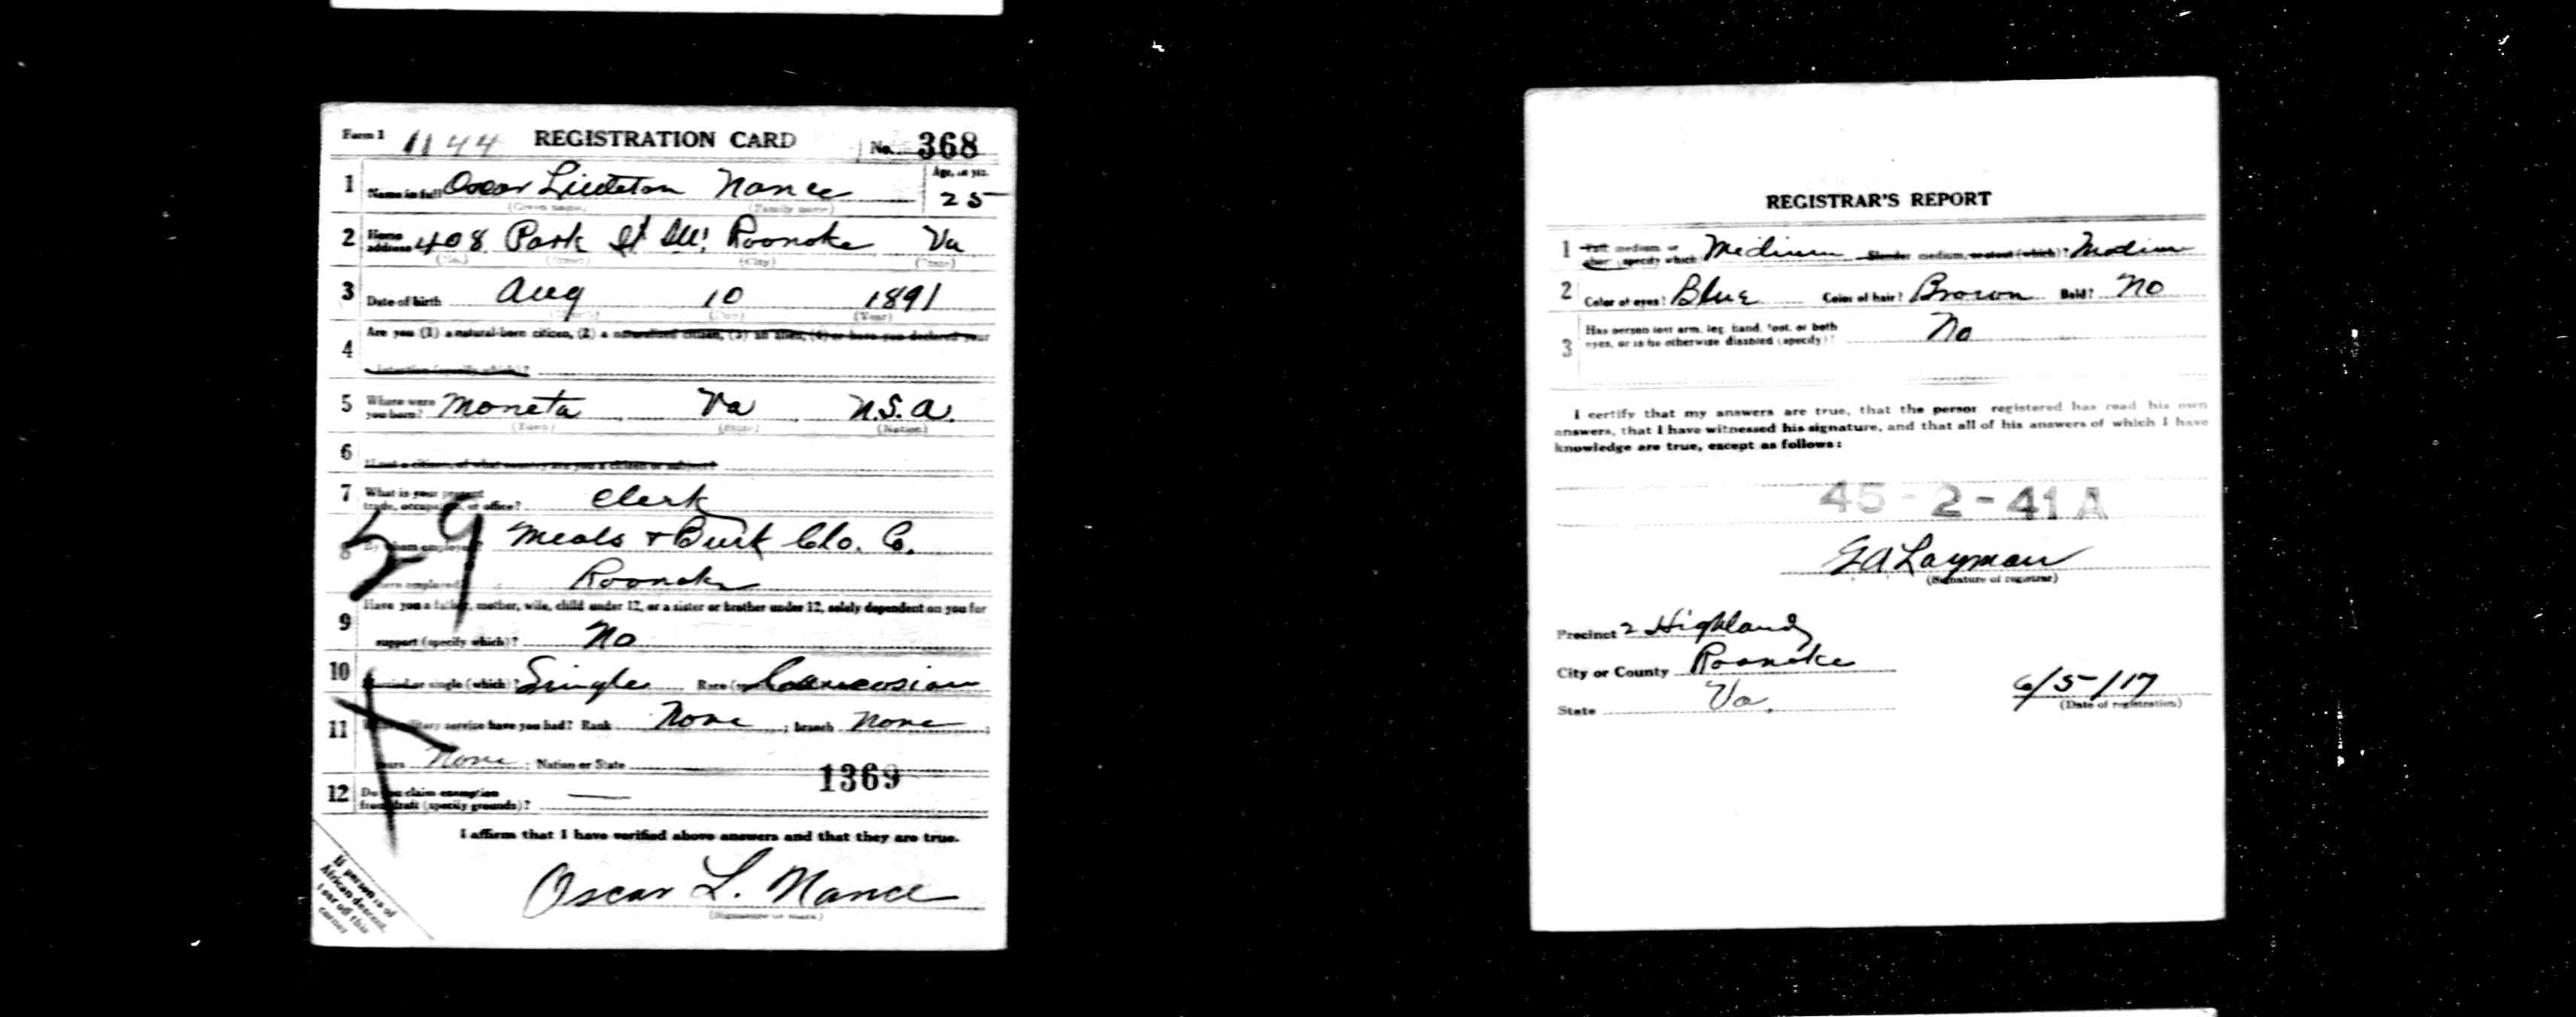 Form 1 1144 REGISTRATION CARD No. 368
1 Name in full Oscar Littleton Nance Age, in yrs. 25
(Given name) (Family name)
2 Home address 408 Park St Roanoke Va
(No.) (Street) (City) (State)
3 Date of birth Aug 10 1891
(Month) (Day) (Year)
4 Are you (1) a natural-born citizen, (2) a naturalized citizen, (3) an alien, (4) or have you declared your
intention (specify which)?
5 Where were you born? Moneta Va U.S.A.
(Town) (State) (Nation)
6 If not a citizen, of what country are you a citizen or subject?
7 What is your present trade, occupation, or office? Clerk
8 By whom employed? Meals & Burk Clo. Co.
Where employed? Roanoke
59
9 Have you a father, mother, wife, child under 12, or a sister or brother under 12, solely dependent on you for
support (specify which)? No
10 Married or single (which)? Single Race (specify which)? Caucasian
11 What military service have you had? Rank None ; branch None ;
years None ; Nation or State
1369
12 Do you claim exemption from draft (specify grounds)? —
I affirm that I have verified above answers and that they are true.
Oscar L. Nance
(Signature or mark)
If person is of
African descent,
tear off this
corner
REGISTRAR'S REPORT
1 Tall, medium, or short (specify which)? Medium Slender, medium, or stout (which)? Medium
2 Color of eyes? Blue Color of hair? Brown Bald? No
3 Has person lost arm, leg, hand, foot, or both
eyes, or is he otherwise disabled (specify)? No
I certify that my answers are true, that the person registered has read his own
answers, that I have witnessed his signature, and that all of his answers of which I have
knowledge are true, except as follows:
45-2-41 A
G A Layman
(Signature of registrar)
Precinct 2 Highland
City or County Roanoke
State Va.
6/5/17
(Date of registration)